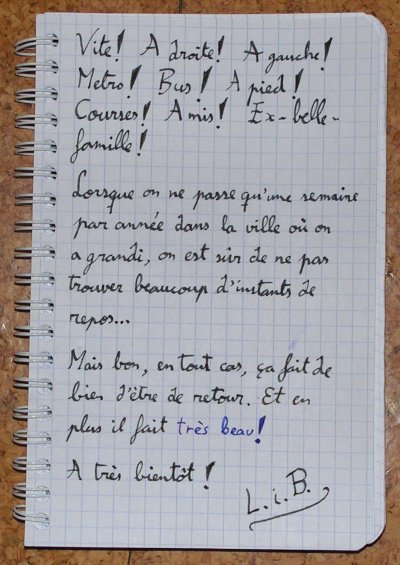 Vite! A droite! A gauche!
Metro! Bus! A pied!
Courses! Amis! Ex-belle-
famille!
Lorsque on ne passe qu'une semaine
par année dans la ville où on
a grandi, on est sûr de ne pas
trouver beaucoup d'instants de
repos...
Mais bon, en tout cas, ça fait de
bien d'être de retour. Et en
plus il fait très beau!
A très bientôt!
L.i.B.